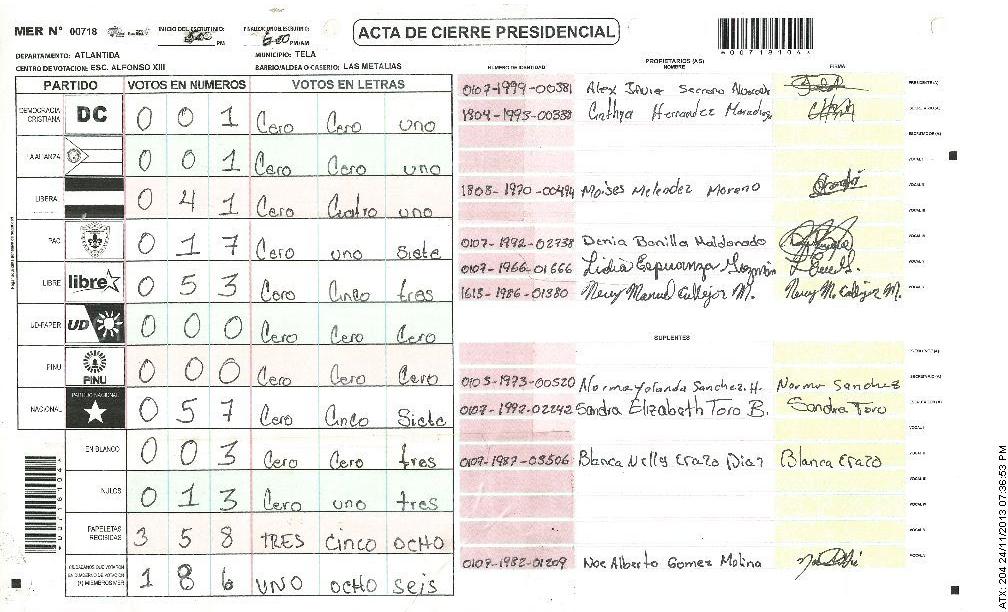 MER N° 00718 INICIO DEL ESCRUTINIO: PM FINALIZACION DEL ESCRUTINIO: 6:00 PM/AM
ACTA DE CIERRE PRESIDENCIAL
00718104
DEPARTAMENTO: ATLANTIDA MUNICIPIO: TELA
CENTRO DE VOTACION: ESC. ALFONSO XIII BARRIO/ALDEA O CASERIO: LAS METALIAS
PARTIDO VOTOS EN NUMEROS VOTOS EN LETRAS
DEMOCRACIA CRISTIANA DC 0 0 1 Cero Cero uno
LA ALIANZA 0 0 1 Cero Cero uno
LIBERAL 0 4 1 Cero Cuatro uno
PAC 0 1 7 Cero uno Siete
LIBRE libre 0 5 3 Cero Cinco tres
UD-FAPER UD 0 0 0 Cero Cero Cero
PINU PINU 0 0 0 Cero Cero Cero
NACIONAL PARTIDO NACIONAL 0 5 7 Cero Cinco Siete
EN BLANCO 0 0 3 Cero Cero tres
NULOS 0 1 3 Cero uno tres
PAPELETAS RECIBIDAS 3 5 8 TRES CINCO OCHO
CIUDADANOS QUE VOTARON EN CUADERNO DE VOTACION (+) MIEMBROS MER 1 8 6 UNO OCHO SEIS
PROPIETARIOS (AS)
NUMERO DE IDENTIDAD NOMBRE FIRMA
0107-1999-00381 Alex Serrano PRESIDENTE(A)
1804-1993-00338 Cinthya Hernandez SECRETARIO(A)
ESCRUTADOR (A)
VOCAL I
1808-1970-00494 Moises Melendez Moreno VOCAL II
VOCAL III
0107-1992-02738 Denia Bonilla Maldonado VOCAL IV
0107-1966-01666 Lidia Esperanza Guzmán VOCAL V
1613-1986-01380 Nery Manuel Callejas M. Nery M. Callejas M.
SUPLENTES
PRESIDENTE(A)
0103-1973-00520 Norma Yolanda Sanchez. H. Norma Sanchez SECRETARIO (A)
0107-1992-02242 Sandra Elizabeth Toro B. Sandra Toro ESCRUTADOR (A)
VOCAL I
0107-1987-03506 Blanca Nelly Erazo Diaz Blanca Erazo VOCAL II
VOCAL III
VOCAL IV
VOCAL V
0107-1982-01209 Noe Alberto Gomez Molina
ATX: 204 24/11/2013 07:36:53 PM